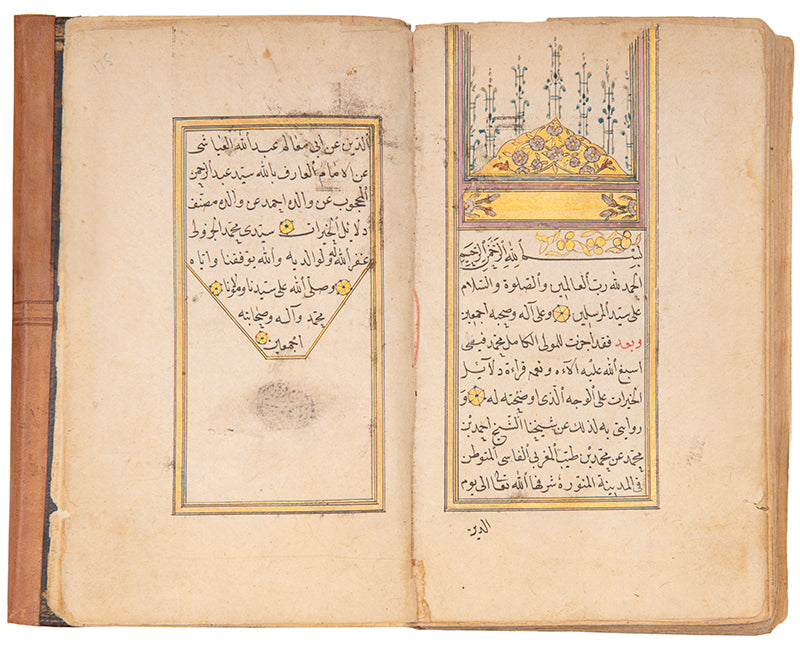 بسم الله الرحمن الرحيم
الحمد لله رب العالمين والصلوة والسلام
على سيد المرسلين وعلى آله وصحبه اجمعين
وبعد فقد اجزت للمولى الكامل محمد فيضى
اسبغ الله عليه الآءه ونعمه قراءة دلائل
الخيرات على الوجه الذى اوضحته له و
روايتى به لذلك عن شيخنا الشيخ احمد بن
محمد عن محمد بن طيب المغربى الفاسى المتوطن
فى المدينة المنورة شرفها الله تعالى الى يوم
الدين
الدين عن ابى عبد الله العياشى
عن الامام العارف بالله سيد عبد الرحمن
المحجوب عن والده احمد عن والده مصنف
دلائل الخيرات سيدى محمد الجزولى
غفر الله لهم ولوالديه والله يوفقنا واياه
وصلى الله على سيدنا ومولانا
محمد وآله وصحابته
اجمعين